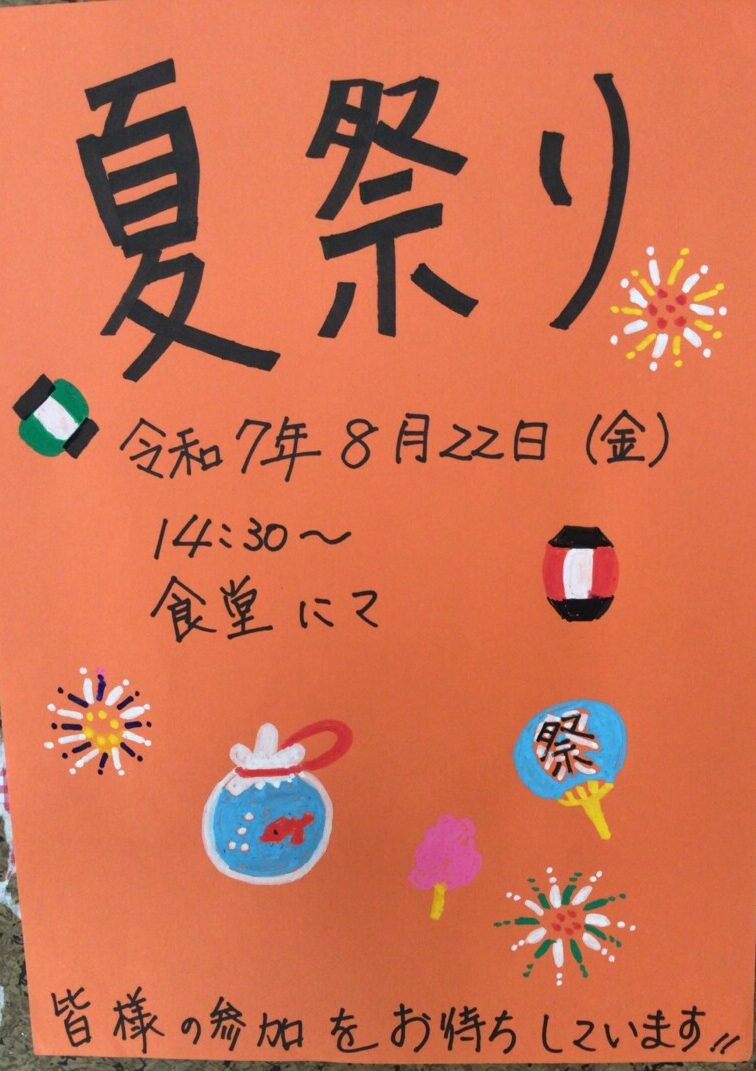 夏祭り
令和7年8月22日(金)
14:30～
食堂にて
祭
皆様の参加をお待ちしています!!